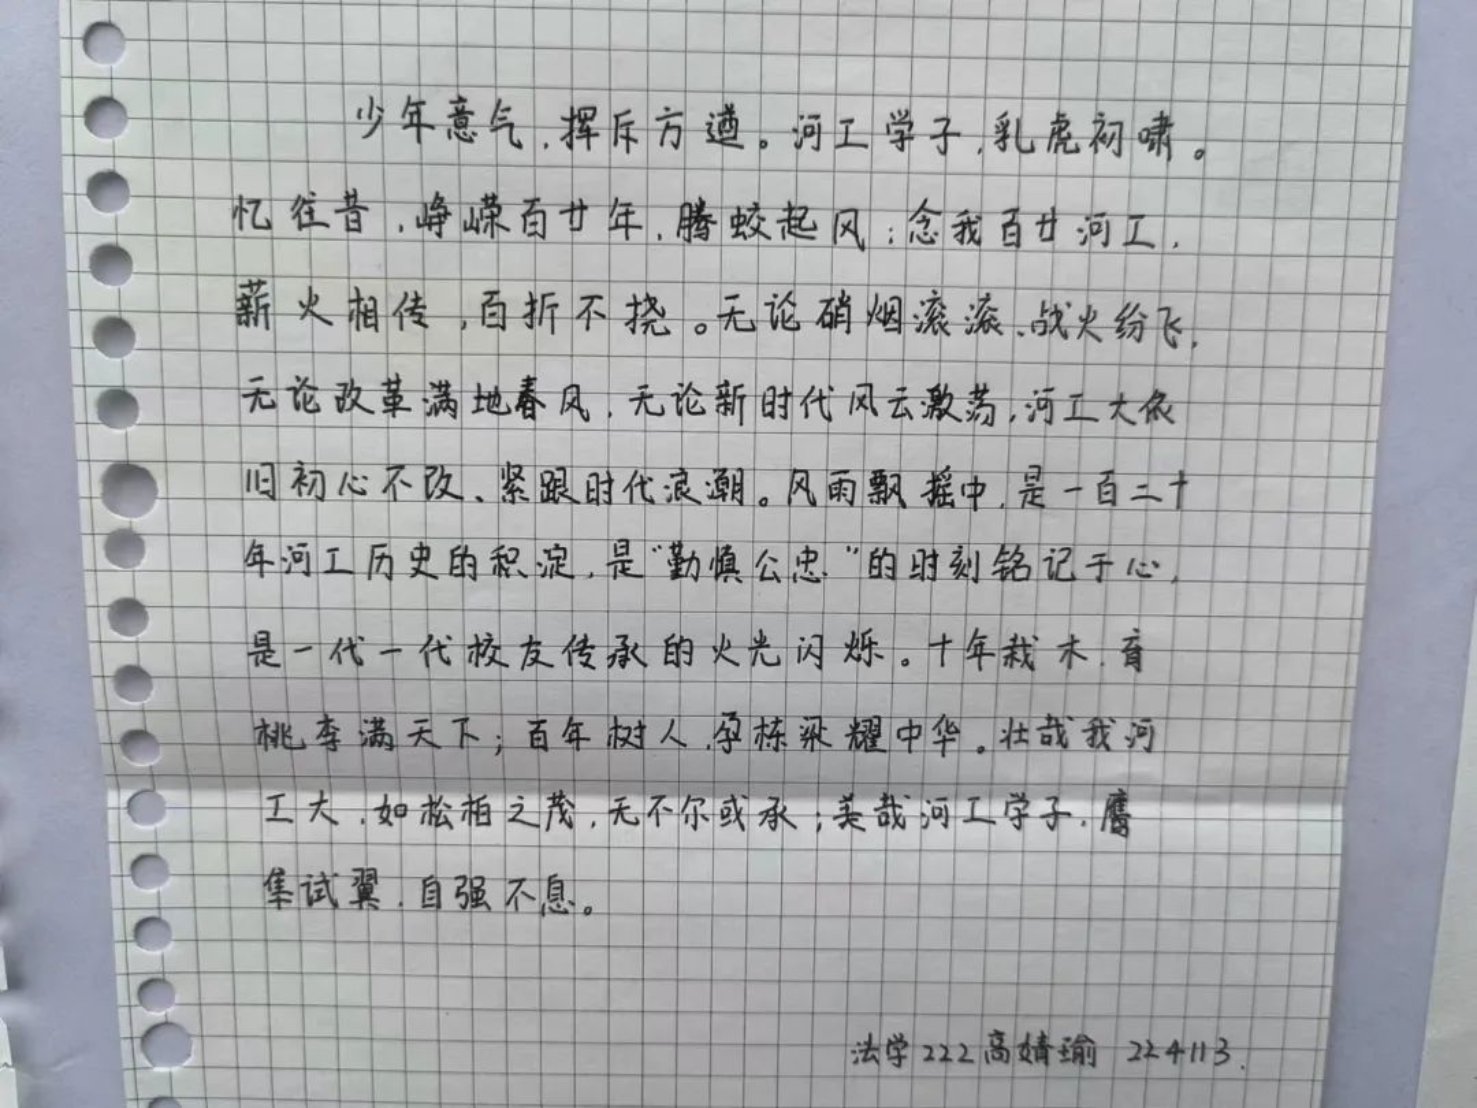 少年意气，挥斥方遒。河工学子，乳虎初啸。
忆往昔，峥嵘百廿年，腾蛟起风；念我百廿河工，
薪火相传，百折不挠。无论硝烟滚滚、战火纷飞，
无论改革满地春风，无论新时代风云激荡，河工大依
旧初心不改、紧跟时代浪潮。风雨飘摇中，是一百二十
年河工历史的积淀，是“勤慎公忠”的时刻铭记于心，
是一代一代校友传承的火光闪烁。十年栽木，育
桃李满天下；百年树人，孕栋梁耀中华。壮哉我河
工大，如松柏之茂，无不尔或承；美哉河工学子，鹰
隼试翼，自强不息。
法学222 高婧瑜 224113.